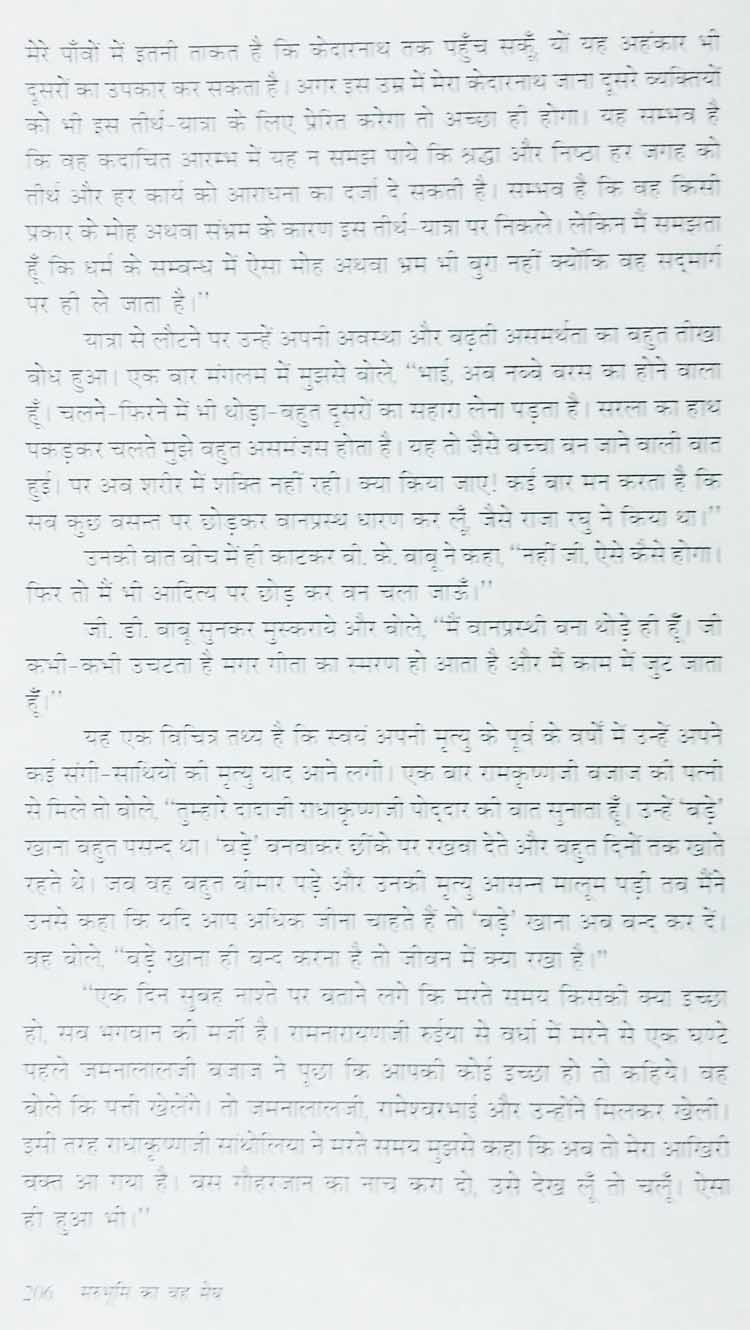 मेरे पाँवों में इतनी ताकत है कि केदारनाथ तक पहुँच सकूँ, यों यह अहंकार भी
दूसरों का उपकार कर सकता है। अगर इस उम्र में मेरा केदारनाथ जाना दूसरे व्यक्तियों
को भी इस तीर्थ-यात्रा के लिए प्रेरित करेगा तो अच्छा ही होगा। यह सम्भव है
कि वह कदाचित आरम्भ में यह न समझ पाये कि श्रद्धा और निष्ठा हर जगह को
तीर्थ और हर कार्य को आराधना का दर्जा दे सकती है। सम्भव है कि वह किसी
प्रकार के मोह अथवा संभ्रम के कारण इस तीर्थ-यात्रा पर निकले। लेकिन मैं समझता
हूँ कि धर्म के सम्बन्ध में ऐसा मोह अथवा भ्रम भी बुरा नहीं क्योंकि वह सद्मार्ग
पर ही ले जाता है।"
यात्रा से लौटने पर उन्हें अपनी अवस्था और बढ़ती असमर्थता का बहुत तीखा
बोध हुआ। एक बार मंगलम में मुझसे बोले, "भाई, अब नब्बे बरस का होने वाला
हूँ। चलने-फिरने में भी थोड़ा-बहुत दूसरों का सहारा लेना पड़ता है। सरला का हाथ
पकड़कर चलते मुझे बहुत असमंजस होता है। यह तो जैसे बच्चा बन जाने वाली बात
हुई। पर अब शरीर में शक्ति नहीं रही। क्या किया जाए! कई बार मन करता है कि
सब कुछ बसन्त पर छोड़कर वानप्रस्थ धारण कर लूँ, जैसे राजा रघु ने किया था।"
उनकी बात बीच में ही काटकर बी. के. बाबू ने कहा, "नहीं जी, ऐसे कैसे होगा।
फिर तो मैं भी आदित्य पर छोड़ कर वन चला जाऊँ।"
जी. डी. बाबू सुनकर मुस्कराये और बोले, "मैं वानप्रस्थी बना थोड़े ही हूँ। जी
कभी-कभी उचटता है मगर गीता का स्मरण हो आता है और मैं काम में जुट जाता
हूँ।"
यह एक विचित्र तथ्य है कि स्वयं अपनी मृत्यु के पूर्व के वर्षों में उन्हें अपने
कई संगी-साथियों की मृत्यु याद आने लगी। एक बार रामकृष्णजी बजाज की पत्नी
से मिले तो बोले, "तुम्हारे दादाजी राधाकृष्णजी पोद्दार की बात सुनाता हूँ। उन्हें 'बड़े'
खाना बहुत पसन्द था। 'बड़े' बनवाकर छींके पर रखवा देते और बहुत दिनों तक खाते
रहते थे। जब वह बहुत बीमार पड़े और उनकी मृत्यु आसन्न मालूम पड़ी तब मैंने
उनसे कहा कि यदि आप अधिक जीना चाहते हैं तो 'बड़े' खाना अब बन्द कर दें।
वह बोले, "बड़े खाना ही बन्द करना है तो जीवन में क्या रखा है।"
"एक दिन सुबह नाश्ते पर बताने लगे कि मरते समय किसकी क्या इच्छा
हो, सब भगवान की मर्जी है। रामनारायणजी रुईया से वर्धा में मरने से एक घण्टे
पहले जमनालालजी बजाज ने पूछा कि आपकी कोई इच्छा हो तो कहिये। वह
बोले कि पत्ती खेलेंगे। तो जमनालालजी, रामेश्वरभाई और उन्होंने मिलकर खेली।
इसी तरह राधाकृष्णजी सांथोलिया ने मरते समय मुझसे कहा कि अब तो मेरा आखिरी
वक्त आ गया है। बस गौहरजान का नाच करा दो, उसे देख लूँ तो चलूँ। ऐसा
ही हुआ भी।"
206 मरुभूमि का वह मेघ